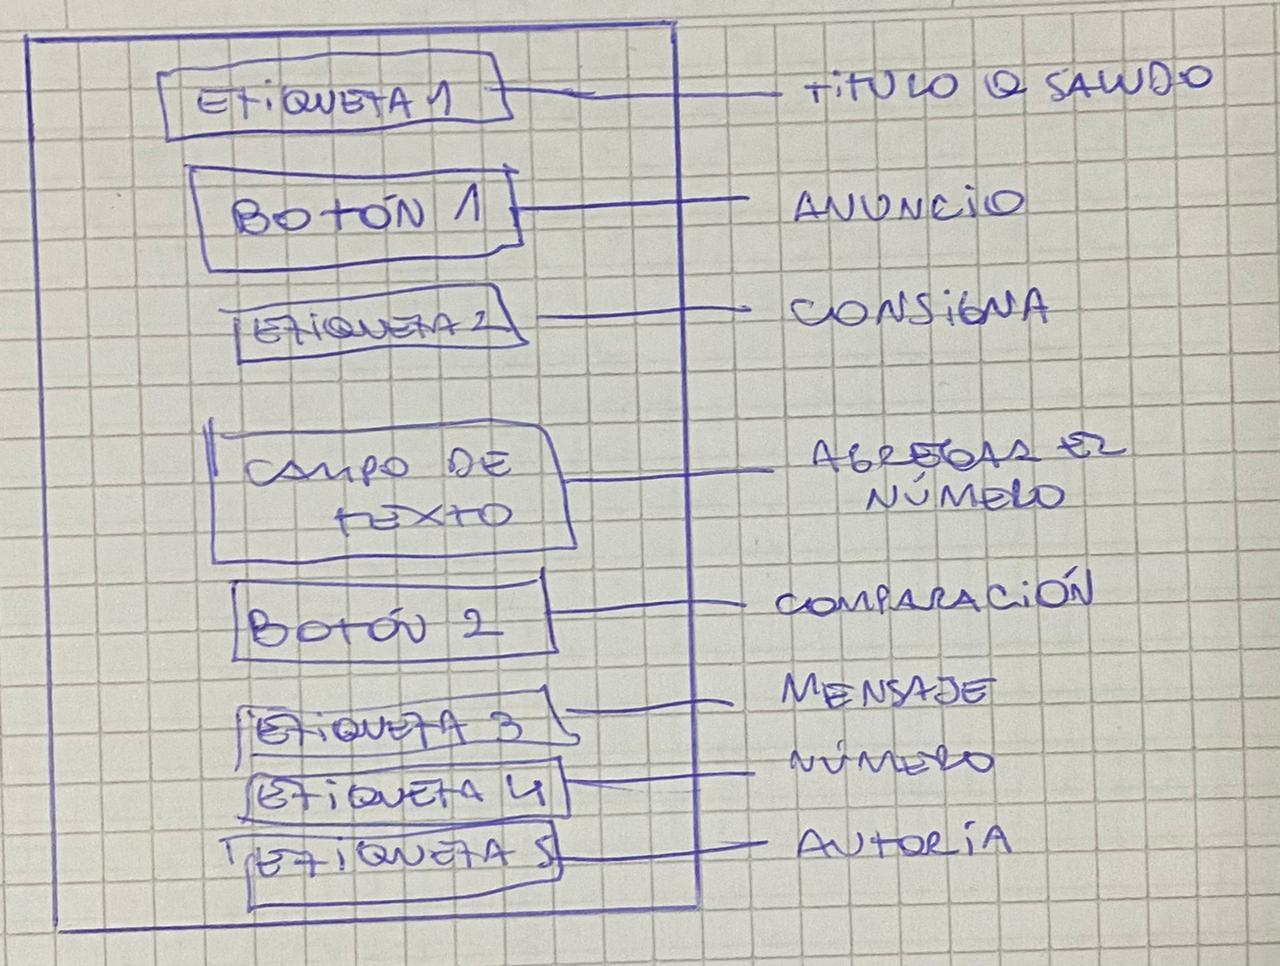 ETIQUETA 1
TÍTULO O SALUDO
BOTÓN 1
ANUNCIO
ETIQUETA 2
CONSIGNA
CAMPO DE
TEXTO
AGREGAR EL
NÚMERO
BOTÓN 2
COMPARACIÓN
ETIQUETA 3
MENSAJE
ETIQUETA 4
NÚMERO
ETIQUETA 5
AUTORÍA